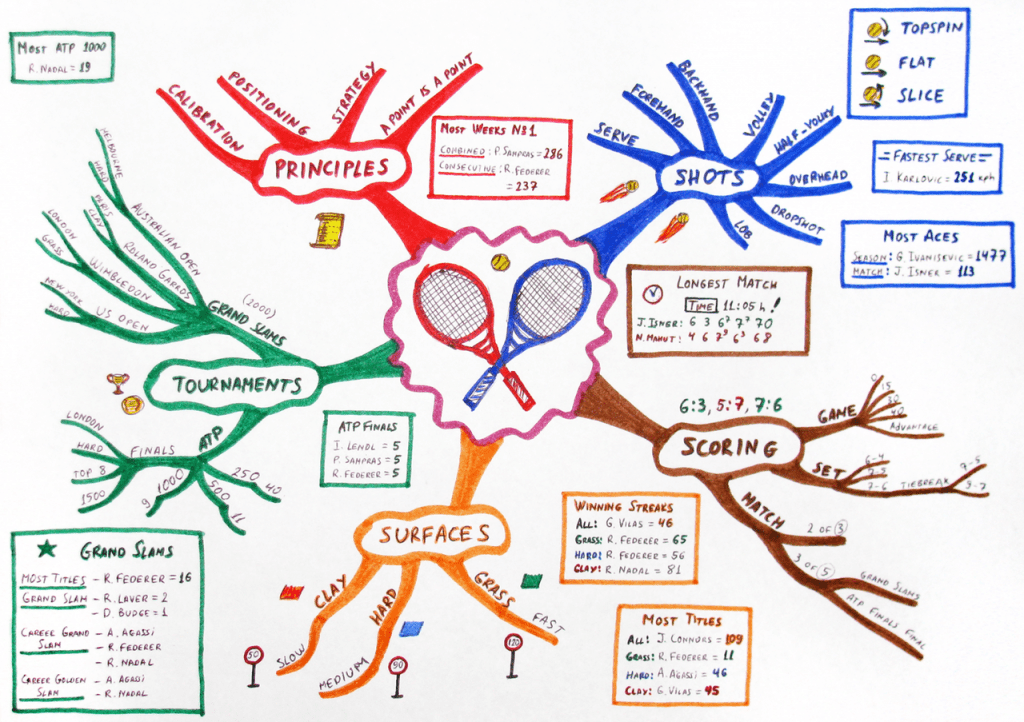 MOST ATP 1000
R. NADAL = 19
PRINCIPLES
CALIBRATION
POSITIONING
STRATEGY
A POINT IS A POINT
MOST WEEKS Nº1
COMBINED: P. SAMPRAS = 286
CONSECUTIVE: R. FEDERER
= 237
SHOTS
SERVE
FOREHAND
BACKHAND
VOLLEY
HALF-VOLLEY
OVERHEAD
DROPSHOT
LOB
TOPSPIN
FLAT
SLICE
=FASTEST SERVE=
I. KARLOVIC = 251 kph
MOST ACES
SEASON: G. IVANISEVIC = 1477
MATCH: J. ISNER = 113
LONGEST MATCH
TIME 11:05 h!
J. ISNER: 6 3 6⁷ 7⁷ 70
N. MAHUT: 4 6 7⁹ 6³ 68
TOURNAMENTS
GRAND SLAMS
(2000)
AUSTRALIAN OPEN
MELBOURNE
HARD
ROLAND GARROS
PARIS
CLAY
WIMBLEDON
LONDON
GRASS
US OPEN
NEW YORK
HARD
ATP
FINALS
LONDON
HARD
TOP 8
1500
1000
9
500
11
250
40
ATP FINALS
I. LENDL = 5
P. SAMPRAS = 5
R. FEDERER = 5
6:3, 5:7, 7:6
SCORING
GAME
0
15
30
40
ADVANTAGE
SET
6-4
7-5
7-6
TIEBREAK
7-5
9-7
MATCH
2 OF 3
3 OF 5
GRAND SLAMS
ATP FINALS FINAL
SURFACES
CLAY
SLOW
50
HARD
MEDIUM
90
GRASS
FAST
120
WINNING STREAKS
ALL: G. VILAS = 46
GRASS: R. FEDERER = 65
HARD: R. FEDERER = 56
CLAY: R. NADAL = 81
MOST TITLES
ALL: J. CONNORS = 109
GRASS: R. FEDERER = 11
HARD: A. AGASSI = 46
CLAY: G. VILAS = 45
GRAND SLAMS
MOST TITLES - R. FEDERER = 16
GRAND SLAM - R. LAVER = 2
- D. BUDGE = 1
CAREER GRAND - A. AGASSI
SLAM - R. FEDERER
- R. NADAL
CAREER GOLDEN - A. AGASSI
SLAM - R. NADAL